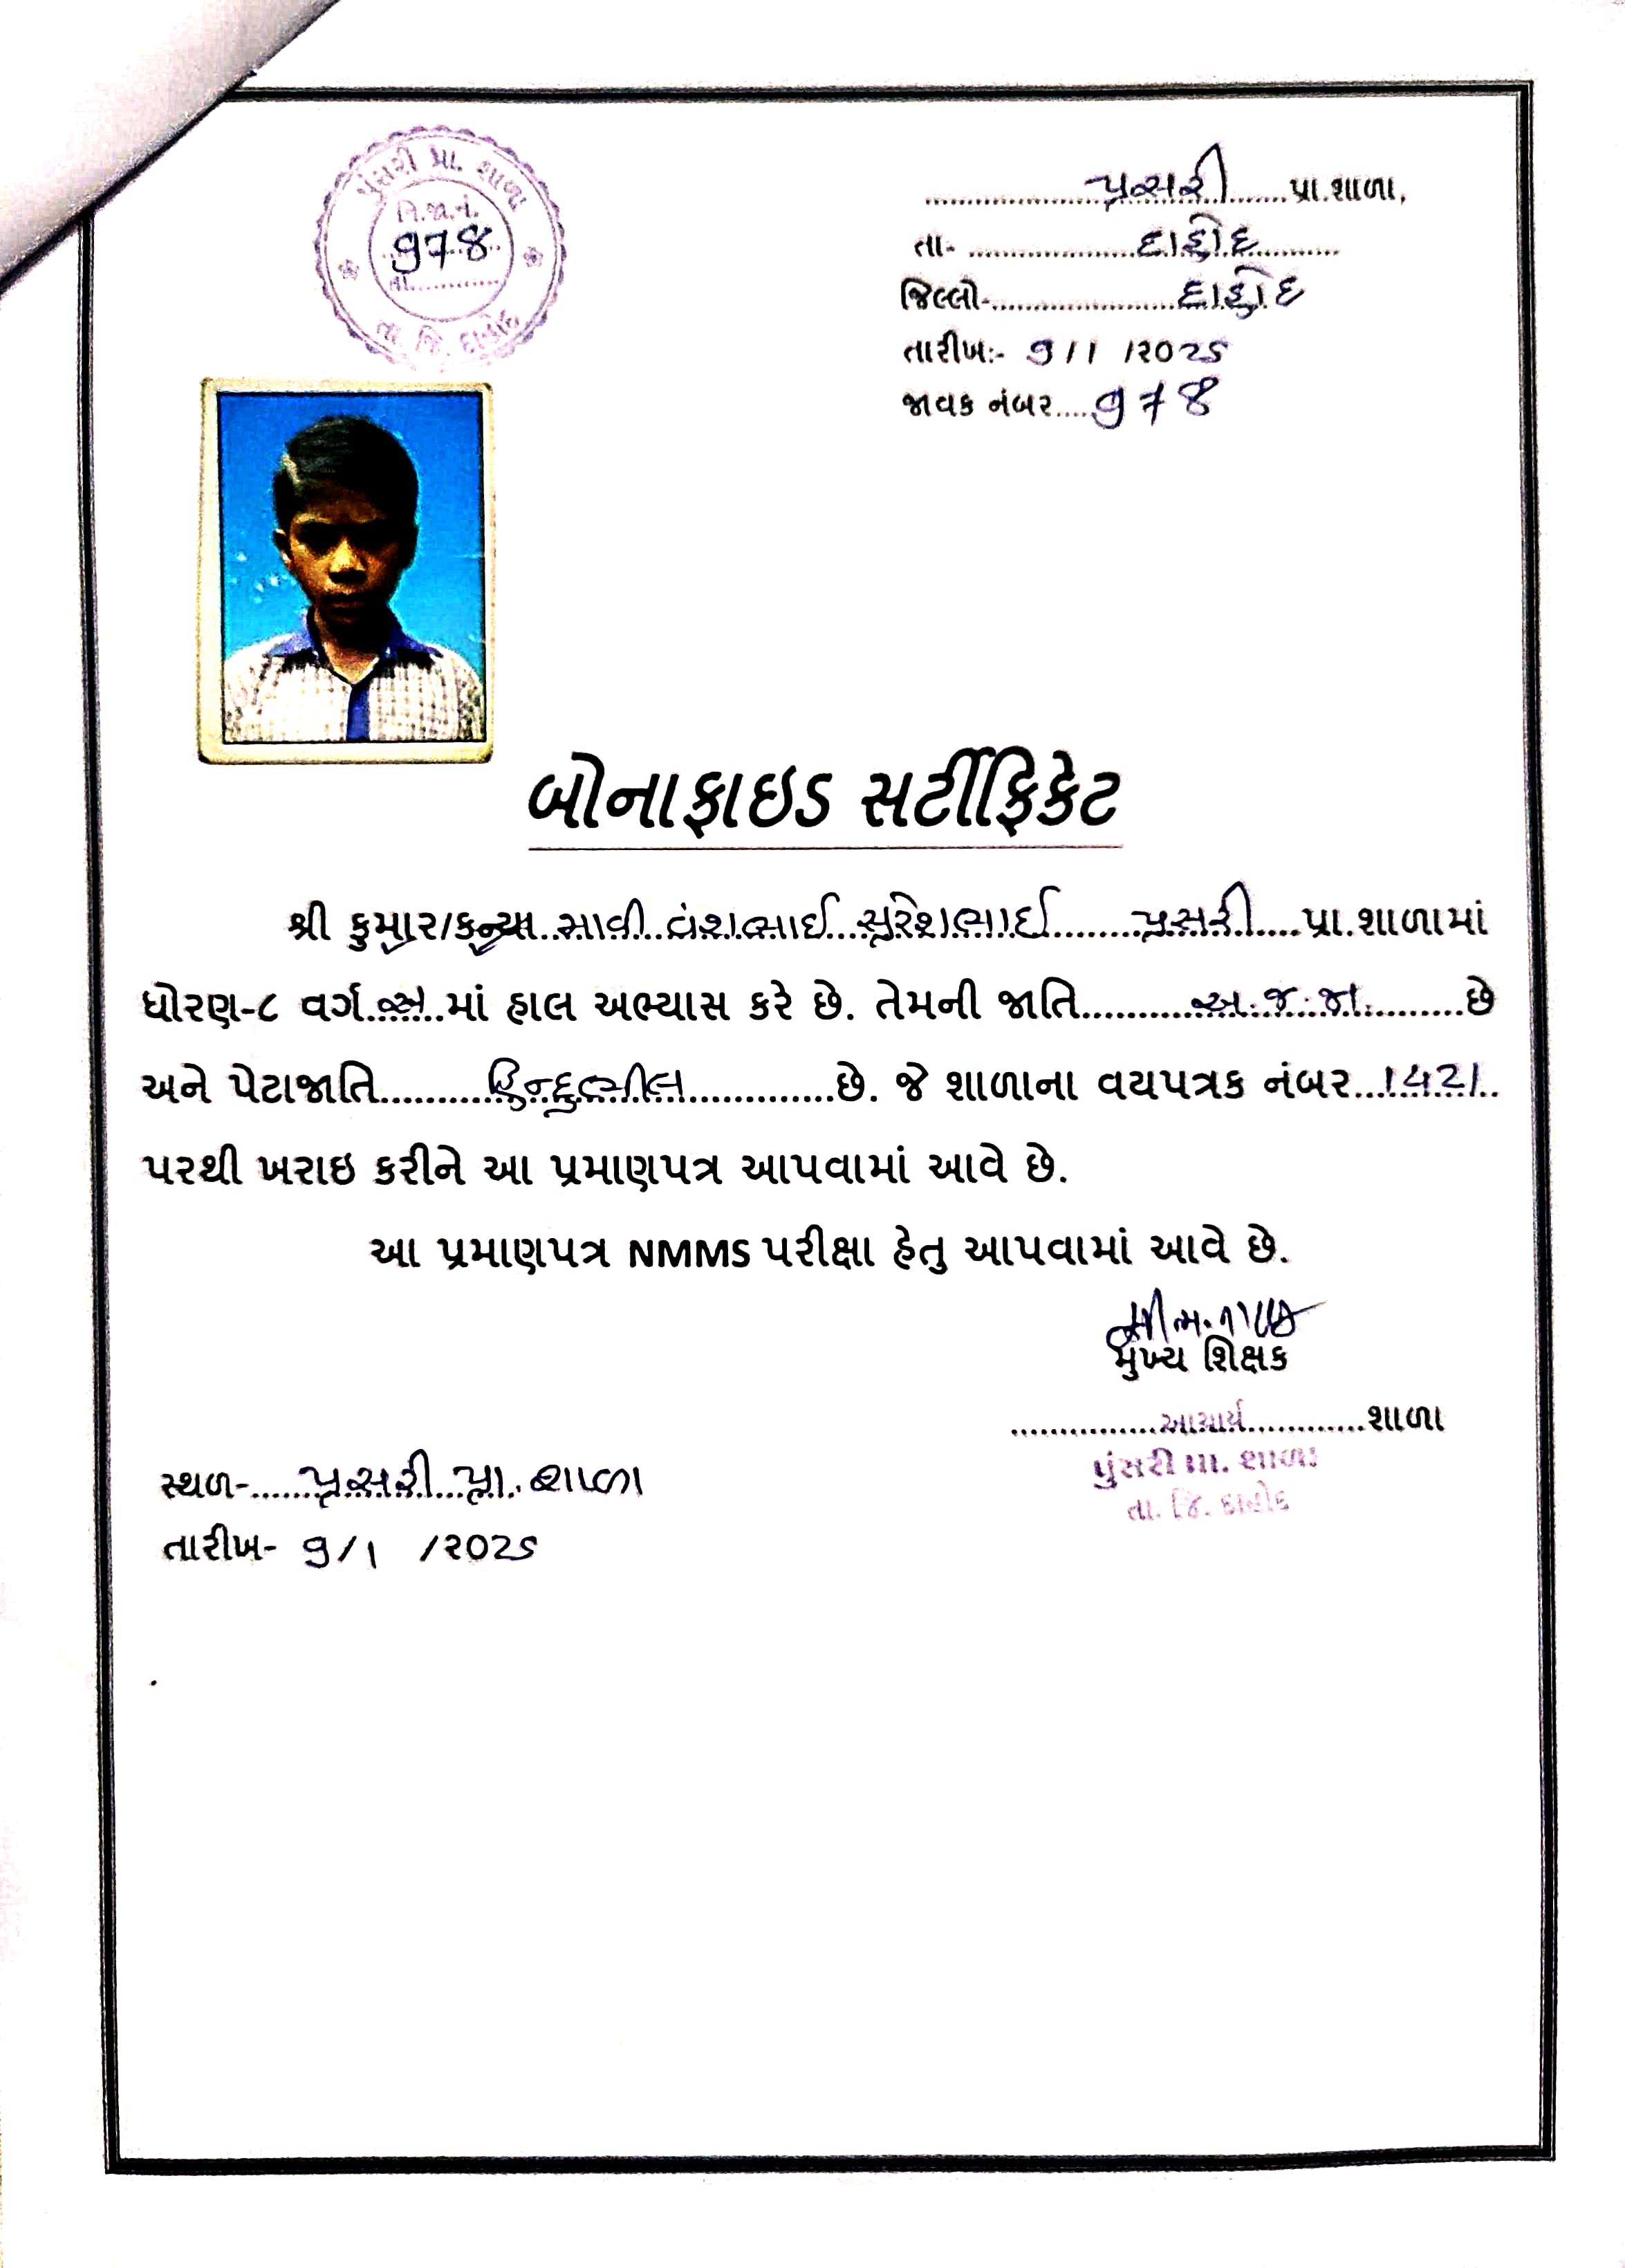 પુંસરી પ્રા. શાળા
નિ.જા.નં.
978
તા............
તા જિ. દાહોદ
પુંસરી પ્રા.શાળા,
તા- દાહોદ
જિલ્લો- દાહોદ
તારીખ:- 9/1/૨૦25
જાવક નંબર 978
બોનાફાઇડ સર્ટીફિકેટ
શ્રી કુમાર/કન્યા સાવી વંશભાઈ સુરેશભાઈ પુંસરી પ્રા.શાળામાં
ધોરણ-૮ વર્ગ અ માં હાલ અભ્યાસ કરે છે. તેમની જાતિ અ.જ.જા. છે
અને પેટાજાતિ હિન્દુભીલ છે. જે શાળાના વયપત્રક નંબર 1421
પરથી ખરાઇ કરીને આ પ્રમાણપત્ર આપવામાં આવે છે.
આ પ્રમાણપત્ર NMMS પરીક્ષા હેતુ આપવામાં આવે છે.
મુખ્ય શિક્ષક
આચાર્ય શાળા
પુંસરી પ્રા. શાળા
તા. જિ. દાહોદ
સ્થળ- પુંસરી પ્રા. શાળા
તારીખ- 9/1 /૨૦25